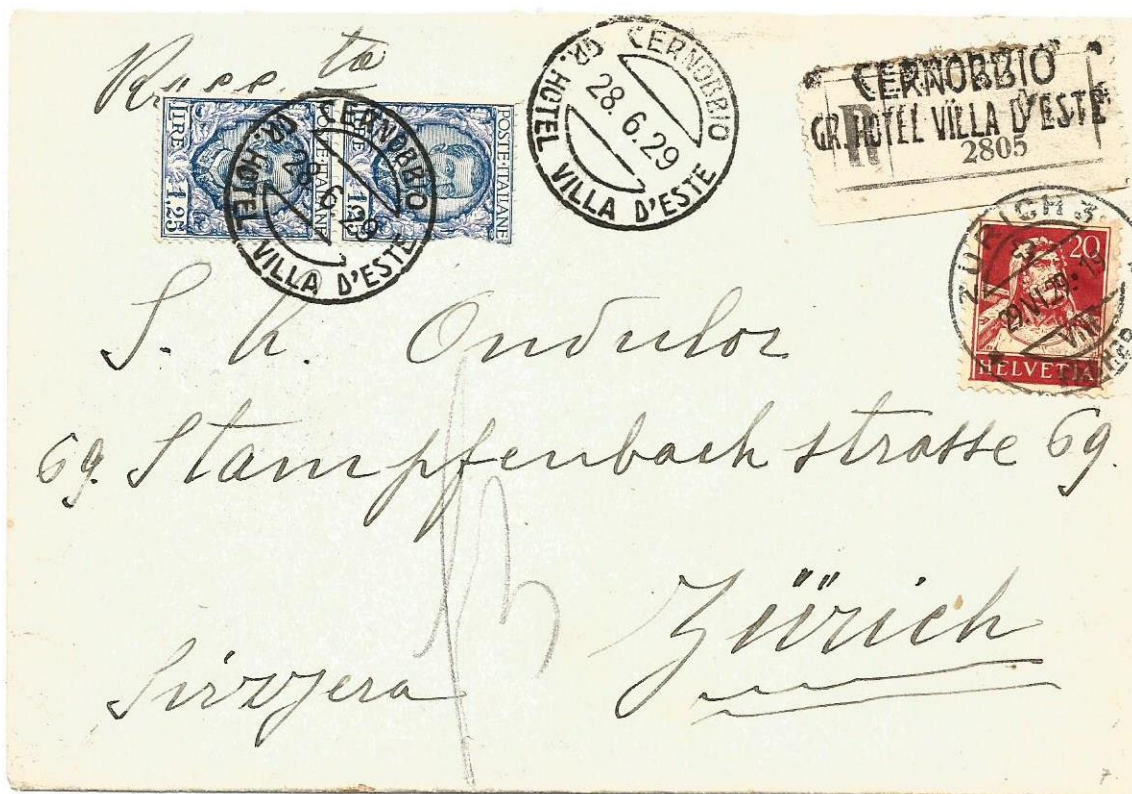 Racc.ta
LIRE 1,25 POSTE ITALIANE
LIRE 1,25 POSTE ITALIANE
CERNOBBIO
28.6.29
GR. HOTEL VILLA D'ESTE
CERNOBBIO
28.6.29
GR. HOTEL VILLA D'ESTE
CERNOBBIO
GR. HOTEL VILLA D'ESTE
R
2805
ZÜRICH 3
29.VI.29
VIII
20
HELVETIA
S. h. Ondulor
69. Stampfenbachstrasse 69.
Zürich
Sizzjera
7.